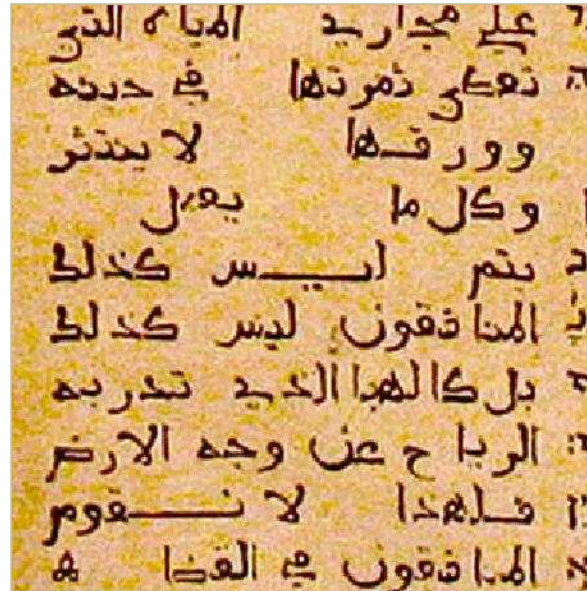 علي مجاري المياه التي
تعطي ثمرتها في حينه
وورقها لا ينتثر
وكل ما يعمل
يتم ليس كذلك
المنافقون ليس كذلك
بل كالهبا الذي تذريه
الرياح عن وجه الارض
فلهذا لا تقوم
المنافقون في القضا